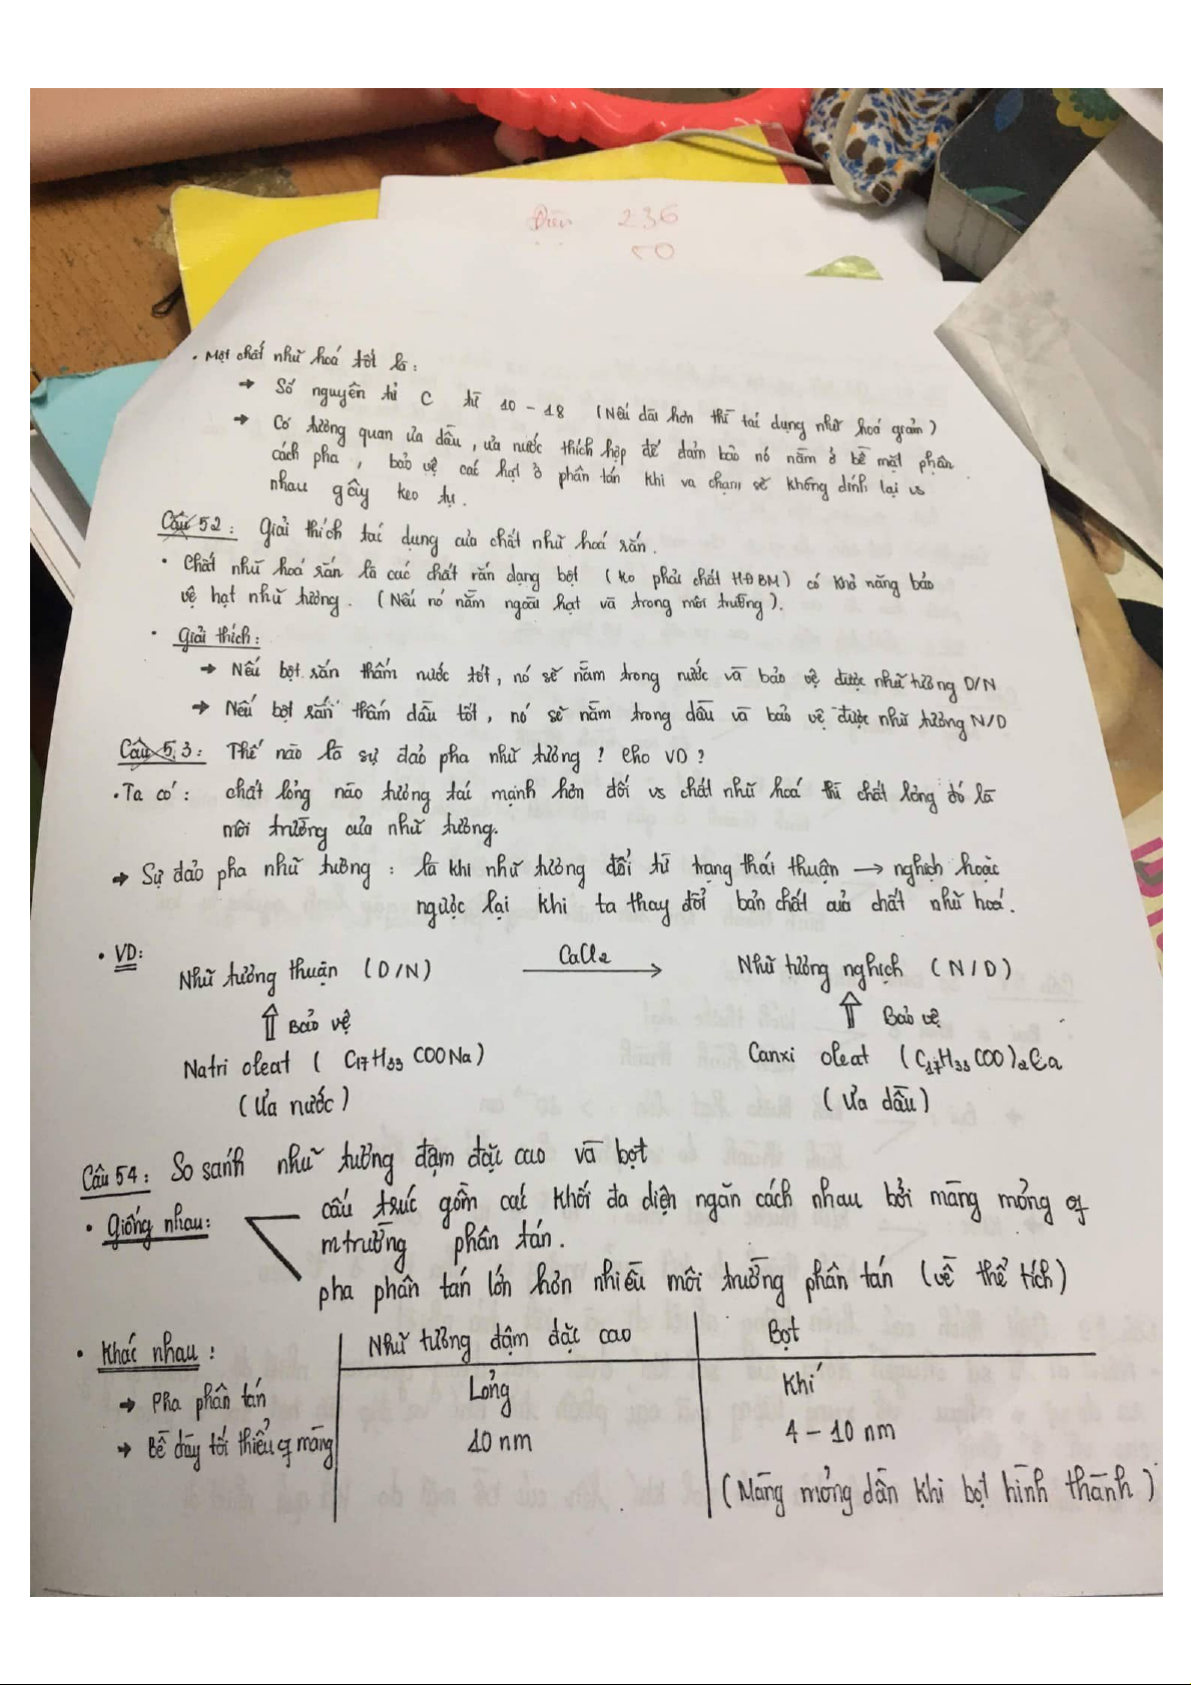 236
50
• Một chất nhũ hoá tốt là:
→ Số nguyên tử C từ 10 - 18 (Nếu dài hơn thì tác dụng nhũ hoá giảm)
→ Có tương quan ưa dầu, ưa nước thích hợp để đảm bảo nó nằm ở bề mặt phân
cách pha, bảo vệ các hạt ở phân tán khi va chạm sẽ không dính lại vs
nhau gây keo tụ.
Câu 52: Giải thích tác dụng của chất nhũ hoá rắn.
• Chất nhũ hoá rắn là các chất rắn dạng bột (ko phải chất HĐBM) có khả năng bảo
vệ hạt nhũ tương. (Nếu nó nằm ngoài hạt và trong môi trường).
• Giải thích:
→ Nếu bột rắn thấm nước tốt, nó sẽ nằm trong nước và bảo vệ được nhũ tương D/N
→ Nếu bột rắn thấm dầu tốt, nó sẽ nằm trong dầu và bảo vệ được nhũ tương N/D
Câu 53: Thế nào là sự đảo pha nhũ tương? Cho VD?
• Ta có: chất lỏng nào tương tác mạnh hơn đối vs chất nhũ hoá thì chất lỏng đó là
môi trường của nhũ tương.
→ Sự đảo pha nhũ tương: là khi nhũ tương đổi từ trạng thái thuận → nghịch hoặc
ngược lại khi ta thay đổi bản chất của chất nhũ hoá.
• VD:
Nhũ tương thuận (D/N) CaCl2 → Nhũ tương nghịch (N/D)
⇑ Bảo vệ ⇑ Bảo vệ
Natri oleat (C17H33COONa) Canxi oleat (C17H33COO)2Ca
(Ưa nước) (Ưa dầu)
Câu 54: So sánh nhũ tương đậm đặc cao và bọt
• Giống nhau: cấu trúc gồm các khối đa diện ngăn cách nhau bởi màng mỏng of
mtrường phân tán.
pha phân tán lớn hơn nhiều môi trường phân tán (về thể tích)
• Khác nhau: Nhũ tương đậm đặc cao Bọt
→ Pha phân tán Lỏng Khí
→ Bề dày tối thiểu of màng 10 nm 4 - 10 nm
(Màng mỏng dần khi bọt hình thành)